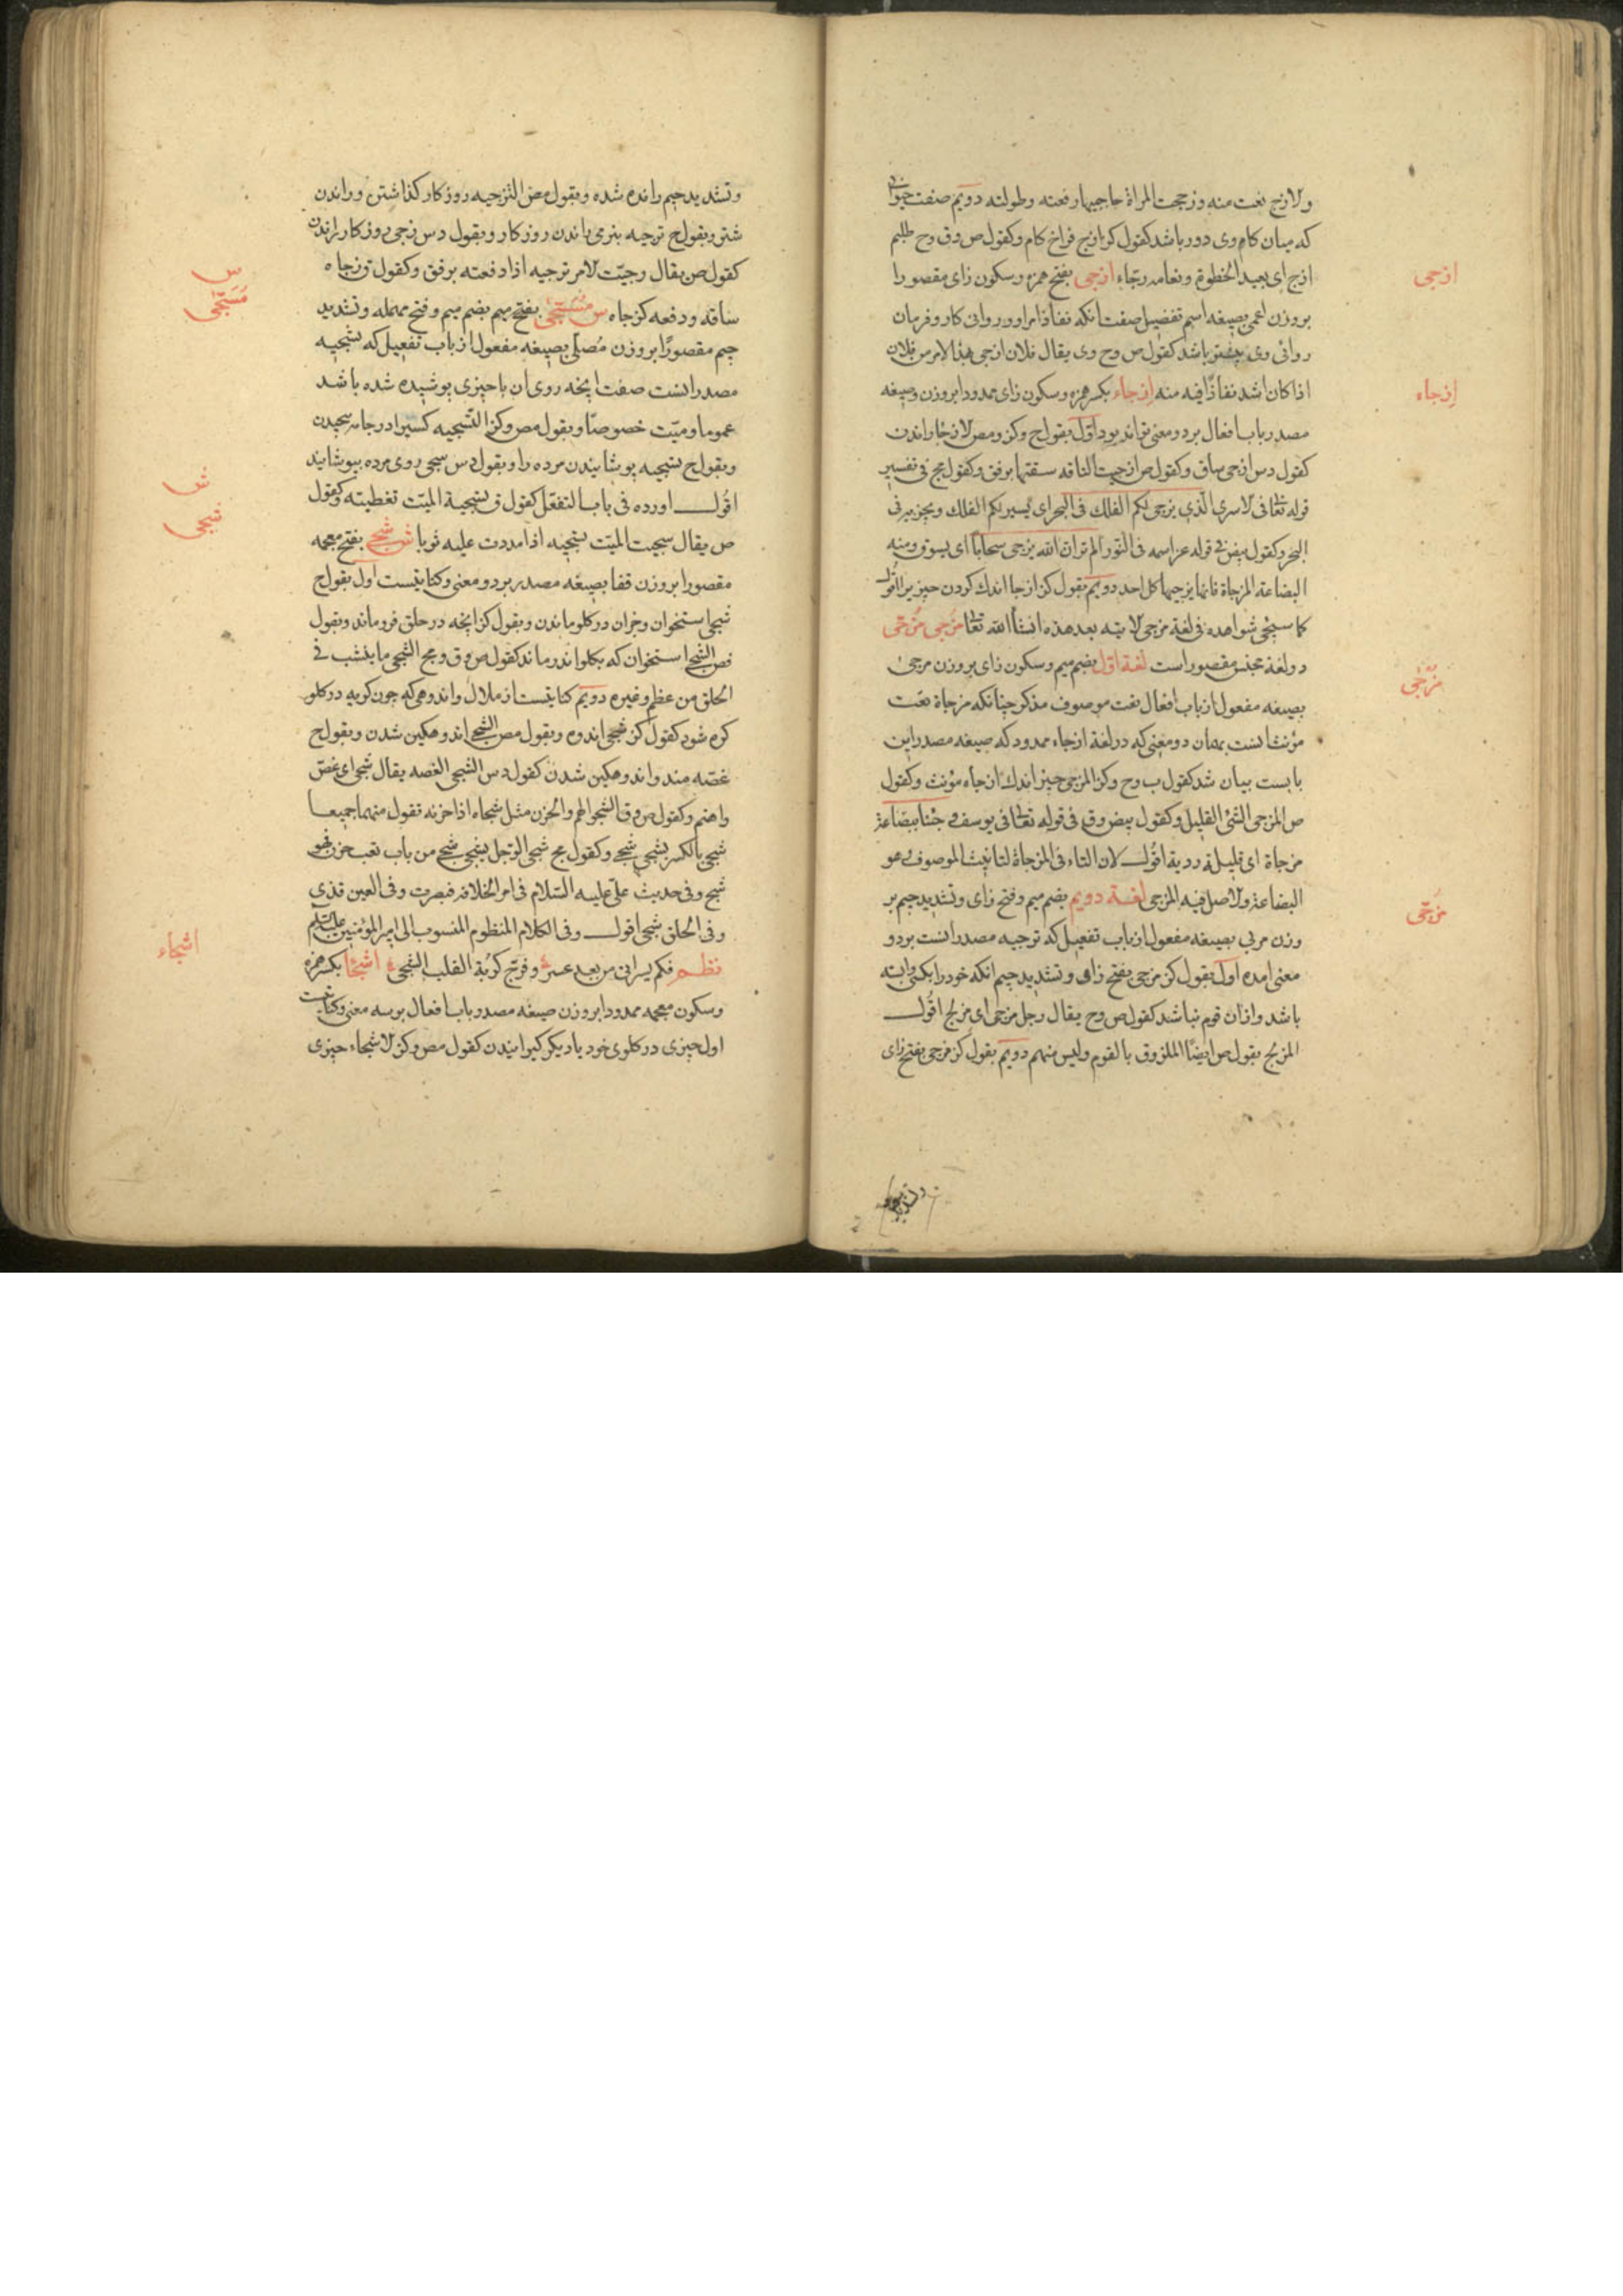 ولازج نعت منه وزججت المراة حاجبیها رفعته وطولته دویم صفت
که میان کام وی دور باشد کقول کز ازج فراخ کام وکقول ص وق وح ظلیم
ازج ای بعید الخطوة ونعامه زجّاء ازجی بفتح همزه وسکون زای مقصورا
بروزن اعمی بصیغه اسم تفضیل صفت انکه نفاذ امر او و روانی کار و فرمان
روائی وی بیشتر باشد کقول ص وح وی یقال فلان ازجی بهذا الامر من فلان
اذا کان اشد نفاذًا فیه منه اِزجاء بکسر همزه وسکون زای ممدودا بروزن وصیغه
مصدر باب افعال بر دو معنی تواند بود اوّل بقول ح وکز و مص الازجا راندن
کقول دس ازجی ساق وکقول ص ازجیت الناقه سقتها برفق وکقول مج فی تفسیر
قوله تعالی فی الاسری الّذی یزجی لکم الفلک فی البحر ای یسیر لکم الفلک ویجریه فی
البحر وکقول بیض فی قوله عز اسمه فی النّور الم تر انّ الله یزجی سحاباً ای یسوق ومنه
البضاعة المزجاة فانها یزجیها کل احد دویم بقول کز ازجا اندک کردن چیزیرا اقُول
کما سیجئ شواهده فی لغة مزجی لایته بعد هذه انشأ الله تعا مُزجی مُزجّی
دو لغة جنس مقصور است لغة اوّل بضم میم وسکون زای بروزن مرجی
بصیغه مفعول از باب افعال نعت موصوف مذکر چنانکه مزجاة نعت
مؤنث انست بهمان دو معنی که در لغة ازجاء ممدود که صیغه مصدر این
بابست بیان شد کقول ب وح وکز المزجی چیز اندک ازجاه مؤنث وکقول
ص المزجی الشئ القلیل وکقول بیض وق فی قوله تعالی فی یوسف و جئنا ببضاعة
مزجاة ای قلیلة ردیة اقُول لان التاء فی المزجاة لتانیث الموصوف وهو
البضاعة والاصل فیه المزجی لغة دویم بضم میم وفتح زای وتشدید جیم بر
وزن مربی بصیغه مفعول از باب تفعیل که تزجیه مصدر انست بر دو
معنی امده اول بقول کز مزجی بفتح زای وتشدید جیم انکه خود را بکسی وابسته
باشد و ازان قوم نباشد کقول ص وح یقال رجل مزجی ای مزلج اقُول
المزلج بقول ص ایضًا الملزوق بالقوم ولیس منهم دویم بقول کز مزجی بفتح زای
ازجی
اِزجاء
مُزْجٰی
مُزَجّی
وتشدید جیم رانده شده وبقول مص التزجیه روزکار کذاشتن و راندن
شتر وبقول ح تزجیه بنرمی راندن روزکار وبقول دس زجی روزکار راندن
کقول ص یقال زجیّت الامر تزجیه اذا دفعته برفق وکقول ق زجاه
ساقه ودفعه کزجاه س مُسَجّٰی بفتح میم بضم میم وفتح مهمله وتشدید
جیم مقصورًا بروزن مُصلّی بصیغه مفعول از باب تفعیل که تسجیه
مصدر انست صفت انچه روی ان باچیزی پوشیده شده باشد
عموما ومیّت خصوصّا وبقول مص وکز التّسجیه کسیرا در جامه پیچیدن
وبقول ح تسجیه پوشانیدن مرده را وبقول دس سجی روی مرده بپوشانید
اقُول اورده فی باب التفعّل کقول ق تسجیة المیّت تغطیته وکقول
ص یقال سجیت المیّت تسجیه اذا مددت علیه ثوبا ش شجی بفتح معجمه
مقصورا بروزن قفا بصیغه مصدر بر دو معنی وکنایتیست اول بقول ح
شجی استخوان وجزان در کلو ماندن وبقول کز انچه در حلق فرو ماند وبقول
فص الشّجی استخوان که بکلو اندر ماند کقول ص وق ومج الشّجی ما ینشب فی
الحلق من عظم وغیره دویم کنایتست از ملال واندوهی که چون کریه در کلو
کره شود کقول کز شجی اندوه وبقول مص الشّجی اندوهکین شدن وبقول ح
غصّه مند واندوهکین شدن کقول دس الشجی الغصه یقال شجی ای غصّ
واهتم وکقول ص وق الشّجو الهم والحزن مثل شجاه اذا حزنه تقول منهما جمیعا
شجی بالکسر یشجی شجی وکقول مج شجی الرّجل یشجی شجی من باب تعب حزن فهو
شج وفی حدیث علیّ علیه السّلام فی امر الخلافه فصبرت وفی العین قذی
وفی الحلق شجی اقول وفی الکلام المنظوم المنسوب الی امیر المؤمنین علیه السّلم
نظم فکم یسر اتی من بعد عسر وفرّج کربة القلب الشّجی اشجأ بکسر همزه
وسکون معجمه ممدودا بروزن صیغه مصدر باب افعال بر سه معنی وکنایتست
اول چیزی در کلوی خود یا دیکر کیرانیدن کقول مص وکز الاشجاء چیزی
س
مُسَجّٰی
ش
شجی
اشجاء